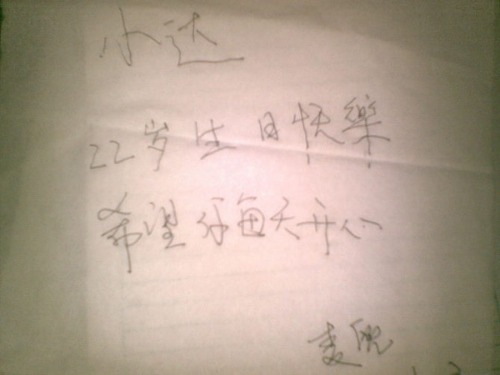 小达
22岁生日快樂
希望你每天开心